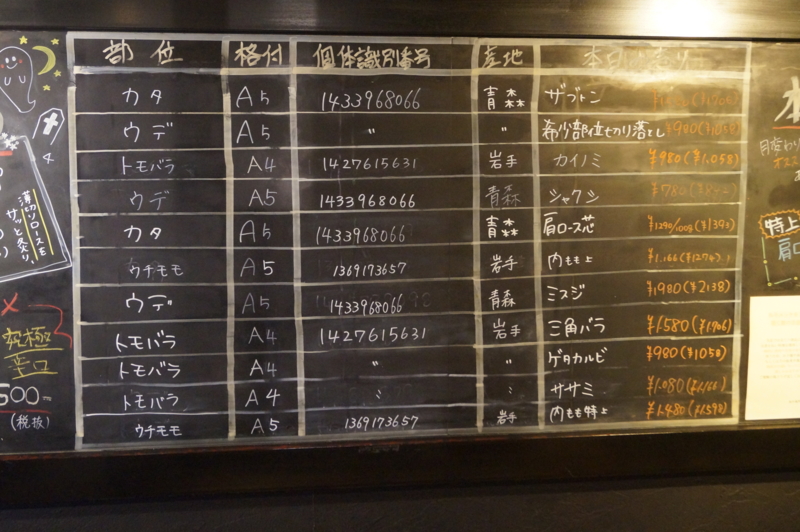 部位 格付 個体識別番号 産地
カタ A5 1433968066 青森 ザブトン
ウデ A5 〃 〃 希少部位切り落とし ¥980(¥1058)
トモバラ A4 1427615631 岩手 カイノミ ¥980(¥1.058)
ウデ A5 1433968066 青森 シャクシ
カタ A5 1433968066 青森 肩ロース芯
ウチモモ A5 1369173657 岩手 内もも上
ウデ A5 1433968066 青森 ミスジ ¥1980(¥2138)
トモバラ A4 1427615631 岩手 三角バラ ¥1.580(¥1.706)
トモバラ A4 〃 〃 ゲタカルビ ¥980(¥1058)
トモバラ A4 〃 〃 ササミ ¥1.080(¥1.166)
ウチモモ A5 1369173657 岩手 内もも特上 ¥1.480(¥1.598)
薄切りロースを
サッと炙り
究極
辛口
500-
(税抜)
特上
肩